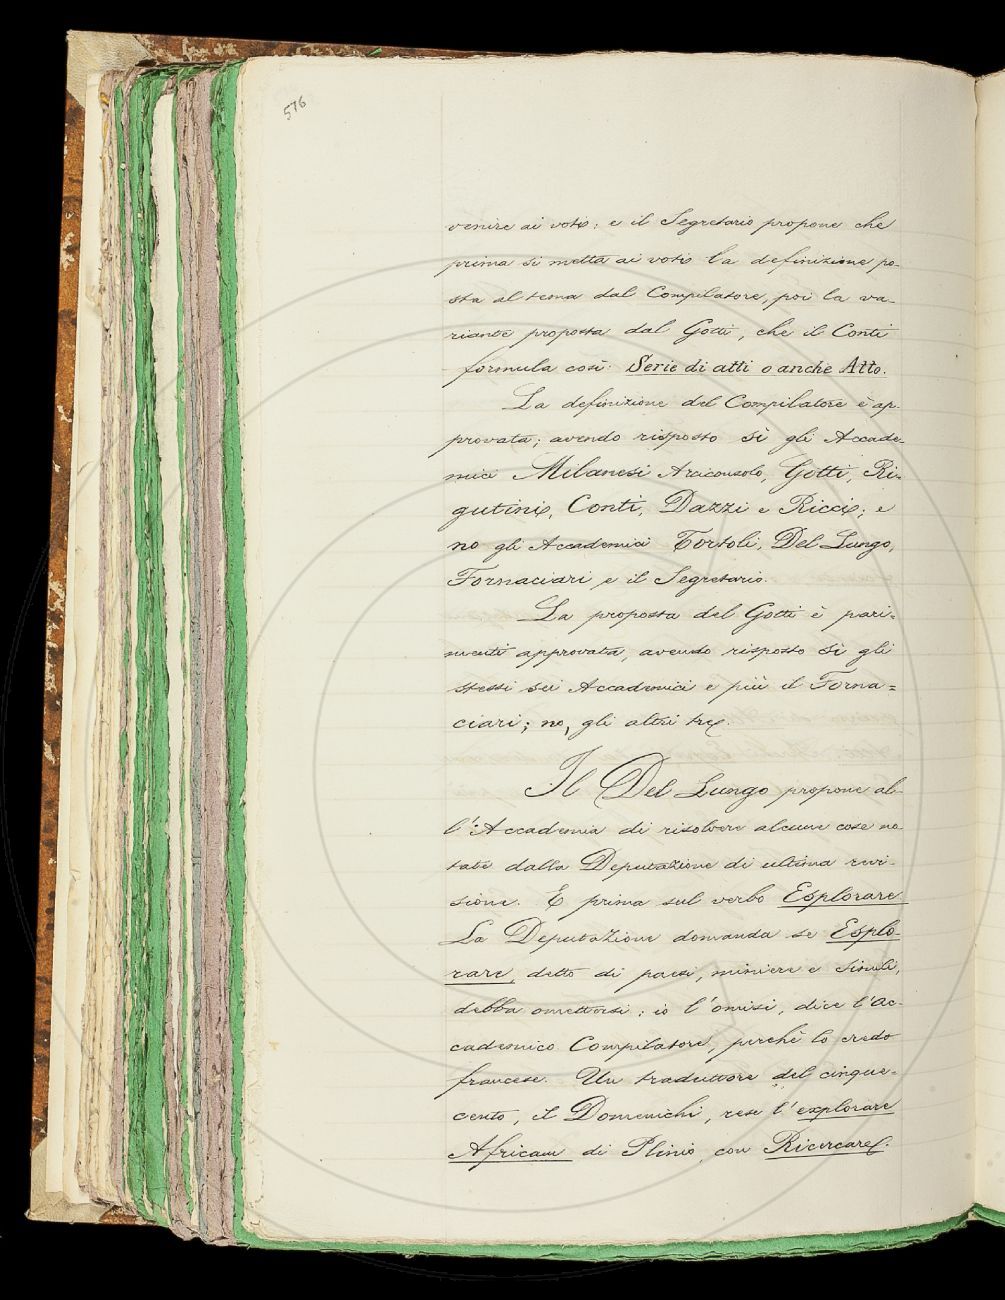 576
venire ai voti: e il Segretario propone che
prima si metta ai voti la definizione po-
sta al tema dal Compilatore, poi la va-
riante proposta dal Gotti, che il Conti
formula così: Serie di atti o anche Atto.
La definizione del Compilatore è ap-
provata; avendo risposto sì gli Accade-
mici Milanesi Arciconsolo, Gotti, Ri-
gutini, Conti, Dazzi e Ricci; e
no gli Accademici Tortoli, Del Lungo,
Fornaciari e il Segretario.
La proposta del Gotti è pari-
menti approvata, avendo risposto sì gli
stessi sei Accademici e più il Forna=
ciari; no, gli altri tre.
Il Del Lungo propone al-
l'Accademia di risolvere alcune cose no-
tate dalla Deputazione di ultima revi-
sione. E prima sul verbo Esplorare
La Deputazione domanda se Esplo-
rare, detto di paesi, miniere e simili,
debba omettersi: io l'omisi, dice l'Ac-
cademico Compilatore, perchè lo credo
francese. Un traduttore del cinque-
cento, il Domenichi, rese l'explorare
Africam di Plinio, con Ricercare: